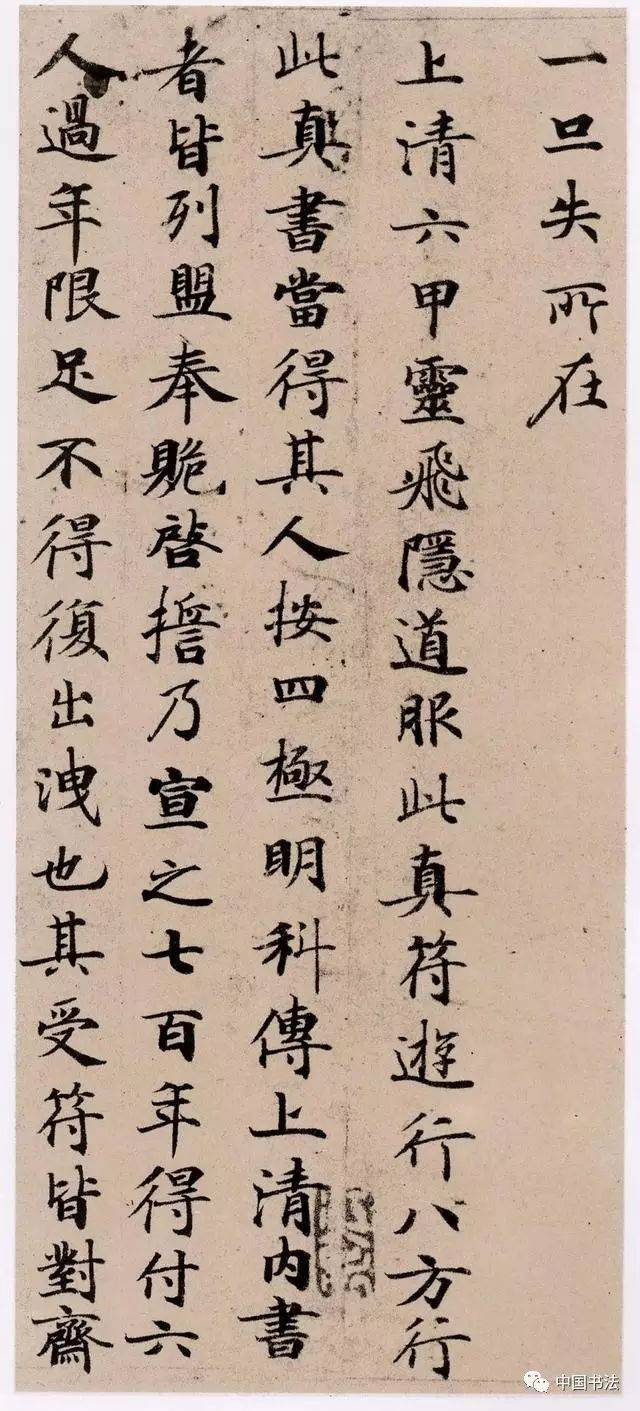 一旦失所在
上清六甲靈飛隱道服此真符遊行八方行
此真書當得其人按四極明科傳上清內書
者皆列盟奉贎啓擔乃宣之七百年得付六
人過年限足不得復出洩也其受符皆對齋
中国书法